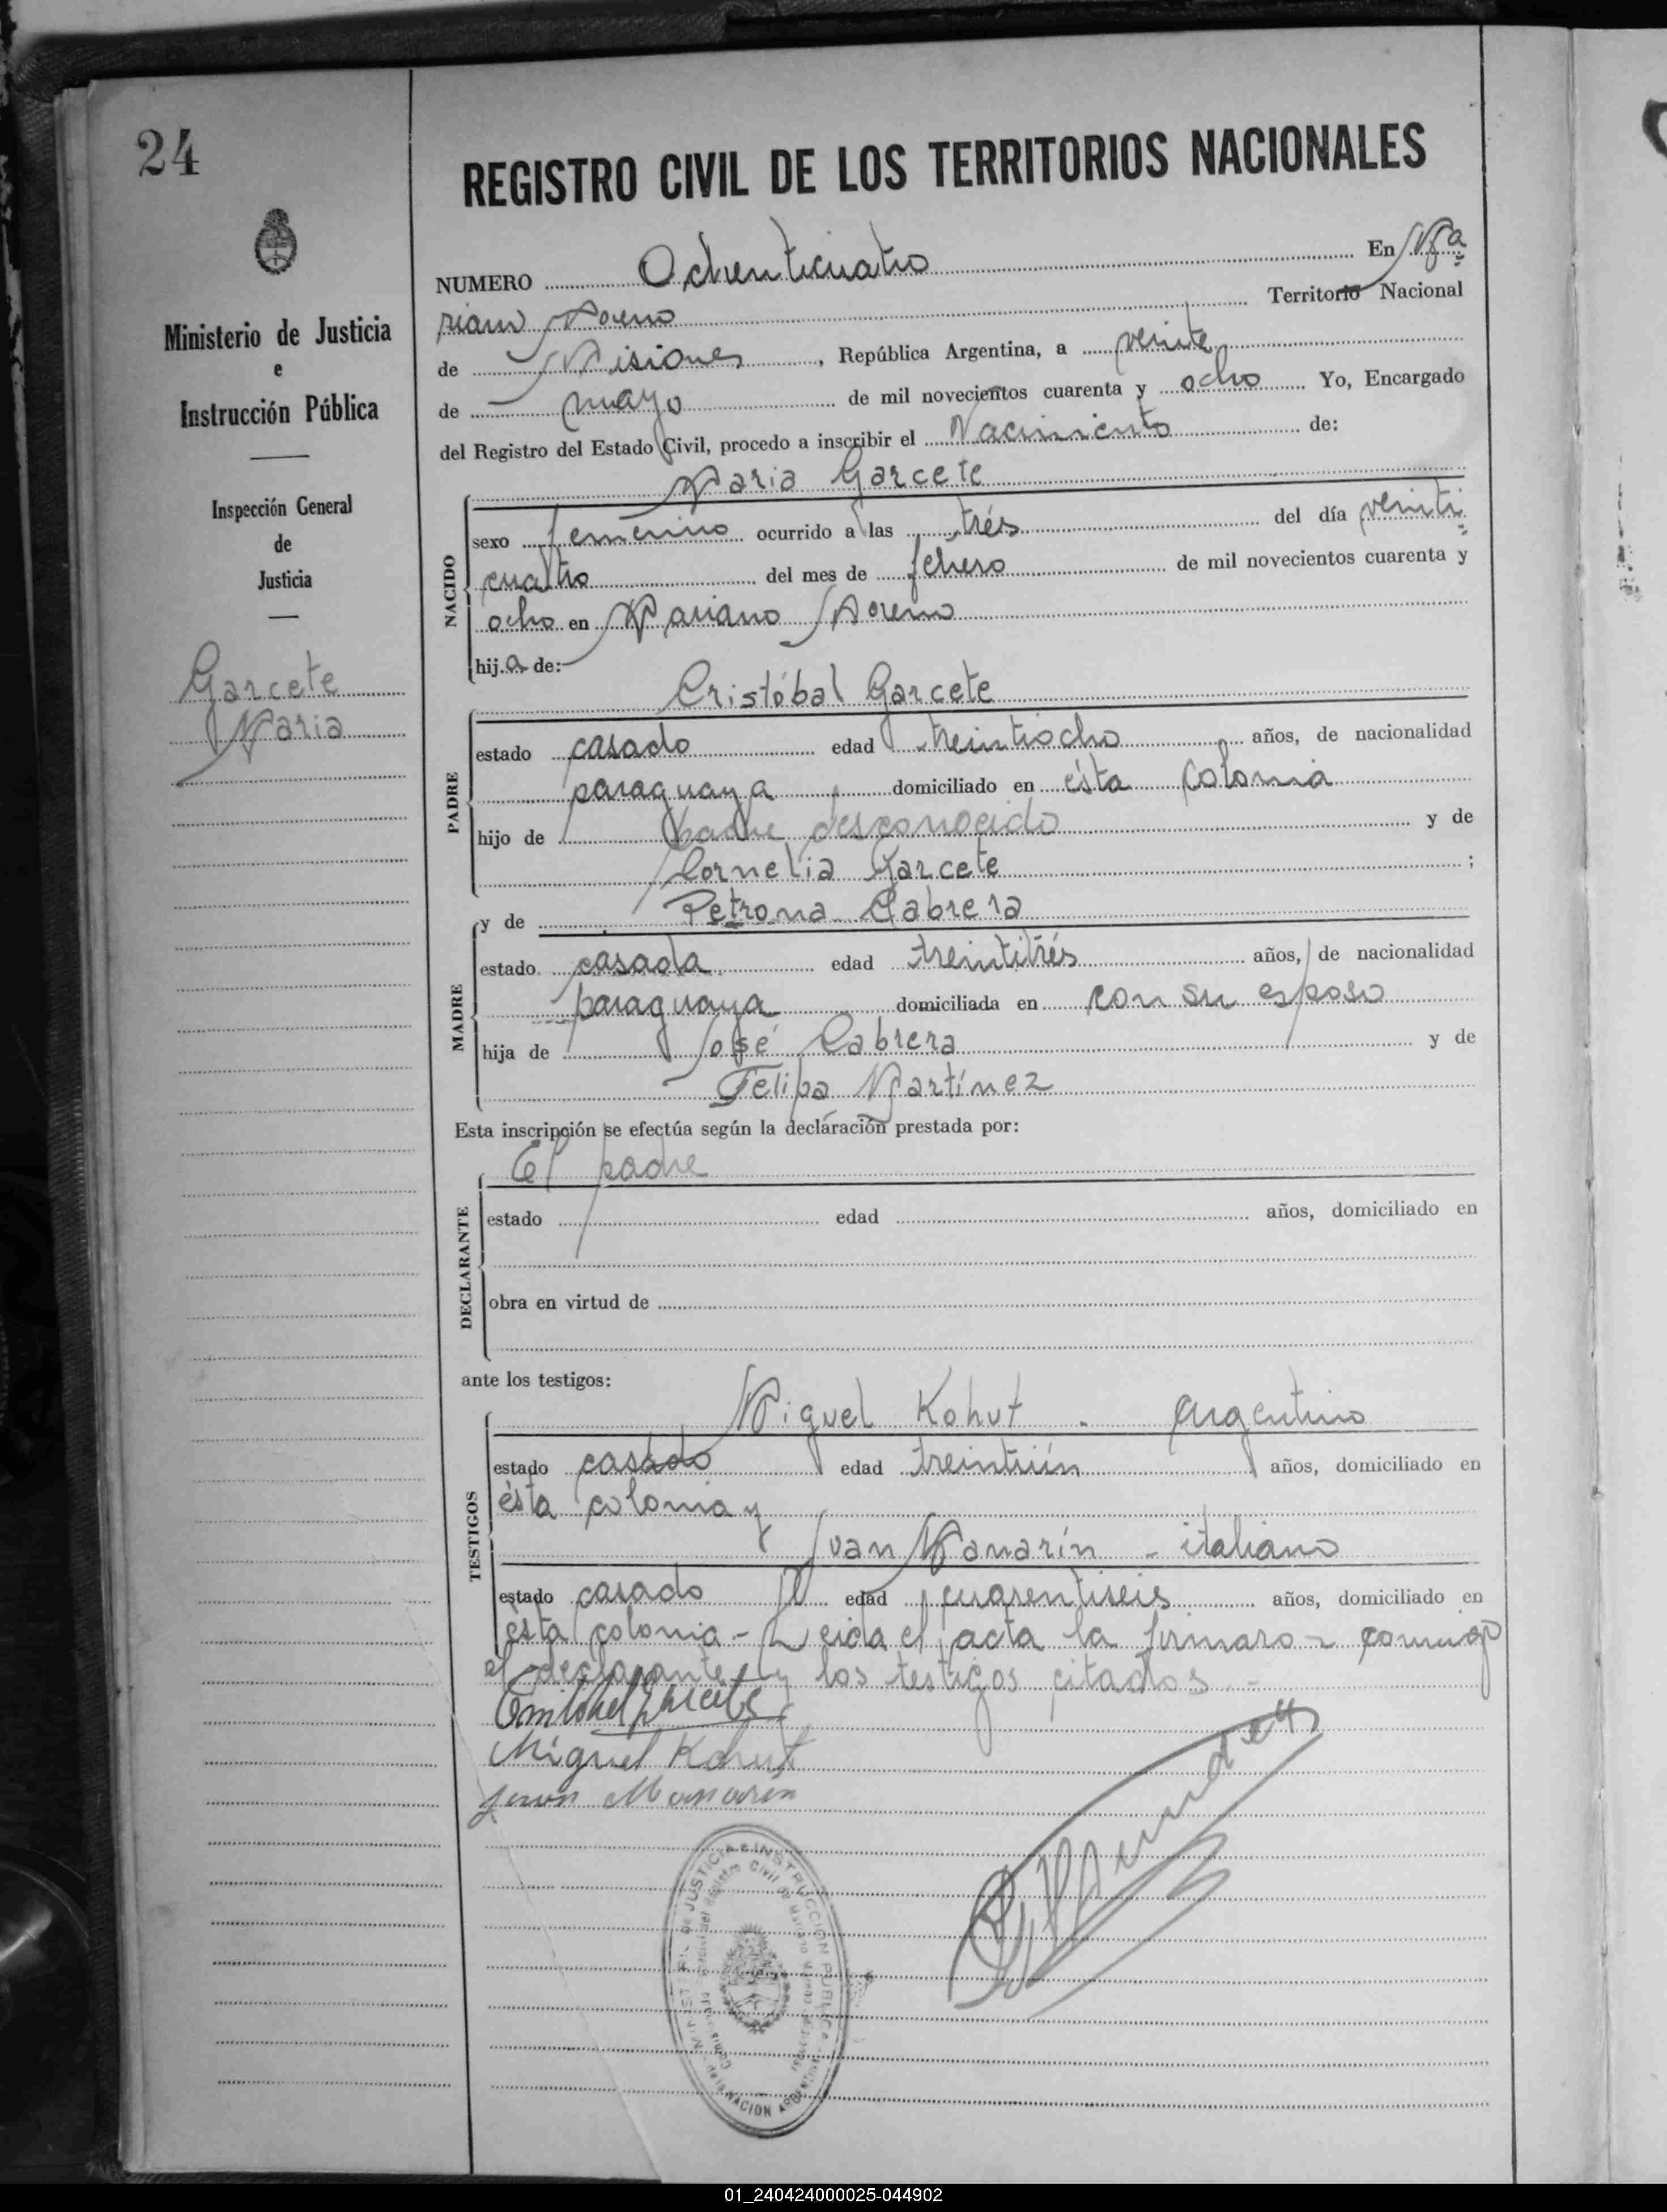 24
REGISTRO CIVIL DE LOS TERRITORIOS NACIONALES
NUMERO Ochenticuatro En Ma
riano Moreno Territorio Nacional
de Misiones, República Argentina, a veinte
de mayo de mil novecientos cuarenta y ocho Yo, Encargado
del Registro del Estado Civil, procedo a inscribir el Nacimiento de:
Maria Garcete
Ministerio de Justicia
e
Instrucción Pública
Inspección General
de
Justicia
Garcete
Maria
NACIDO
sexo femenino ocurrido a las trés del día veinti
cuatro del mes de febrero de mil novecientos cuarenta y
ocho en Mariano Moreno
hija de:
Cristóbal Garcete
PADRE
estado casado edad treintiocho años, de nacionalidad
paraguaya domiciliado en ésta colonia
hijo de padre desconocido y de
Cornelia Garcete ;
y de Petrona Cabrera
MADRE
estado casada edad treintitrés años, de nacionalidad
paraguaya domiciliada en con su esposo
hija de José Cabrera y de
Felipa Martínez
Esta inscripción se efectúa según la declaración prestada por:
El padre
DECLARANTE
estado edad años, domiciliado en
obra en virtud de
ante los testigos:
Miguel Kohut - argentino
TESTIGOS
estado casado edad treintiún años, domiciliado en
ésta colonia y
Juan Manarín - italiano
estado casado edad cuarentiseis años, domiciliado en
ésta colonia - Leida el acta la firmaron conmigo
el declarante y los testigos citados. -
Cristobal Garcete
Miguel Kohut
Juan Manarin
MINISTERIO DE JUSTICIA e INSTRUCCIÓN PÚBLICA
de la NACION
01_240424000025-044902